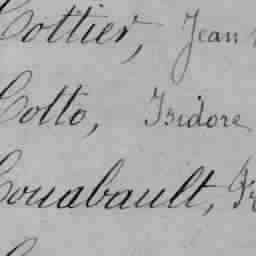 Cottier, Jean
Cotto, Isidore
Couabault,